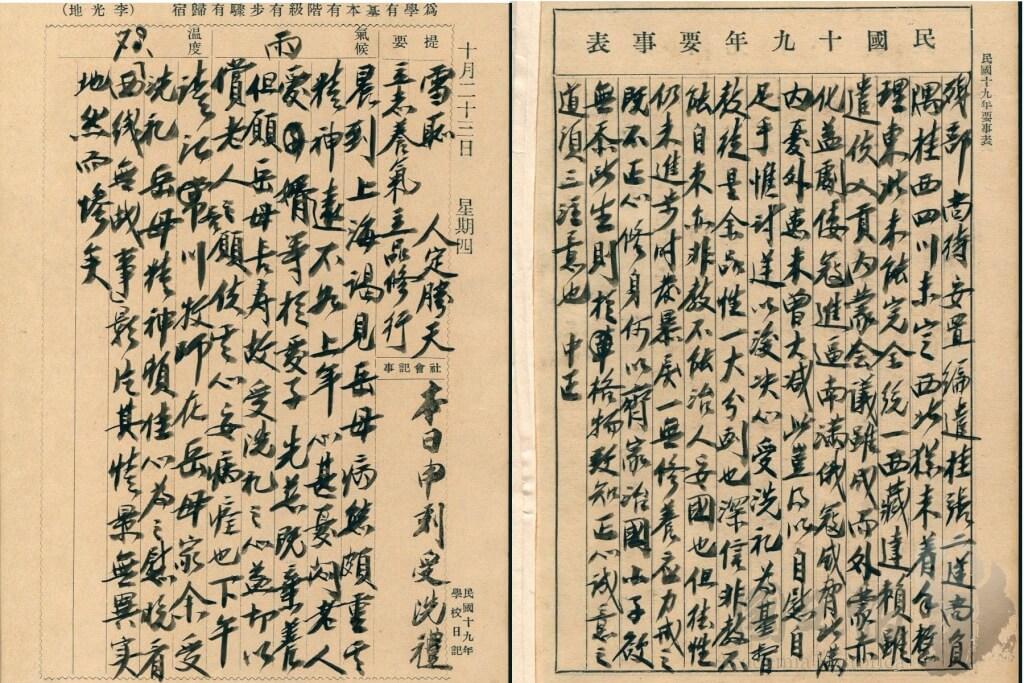 民國十九年要事表
民國十九年要事表
殘部尚待安置編遣桂張二逆尚負
隅桂西四川未定西北猶未着手整
理東北未能完全統一西藏達賴雖
遣使入貢內蒙會議雖成而外蒙赤
化益劇倭寇進逼南滿俄寇威脅北滿
內憂外患未曾大減此豈得以自慰自
足乎惟討逆以後決心受洗禮為基督
教徒是余品性一大分別也深信非教不
能自來亦非教不能治人安國也但德性
仍未進步時發暴戾一無修養應力戒之
既不正心修身何以齊家治國小子欲
無忝此生則於格物致知正心誠意之
道須三注意也 中正
爲學有基本有階級有步驟有歸宿(李光地)
十月二十三日 星期四
民國十九年學校日記
提要
雪恥 人定勝天
立志養氣立品修行
社會記事
本日申刻受洗禮
氣候
雨
溫度
晨到上海謁見岳母病態頗重其
精神遠不如上年心甚憂悶老人
愛婿等於愛子先慈既棄養
但願岳母長壽故受洗禮之心益切以
償老人之願使其心安病痊也下午
請江常川牧師在岳母家余受
洗禮岳母精神頓佳心為之慰晚看
「西線無戰事」影片其情景無異實
地然而慘矣